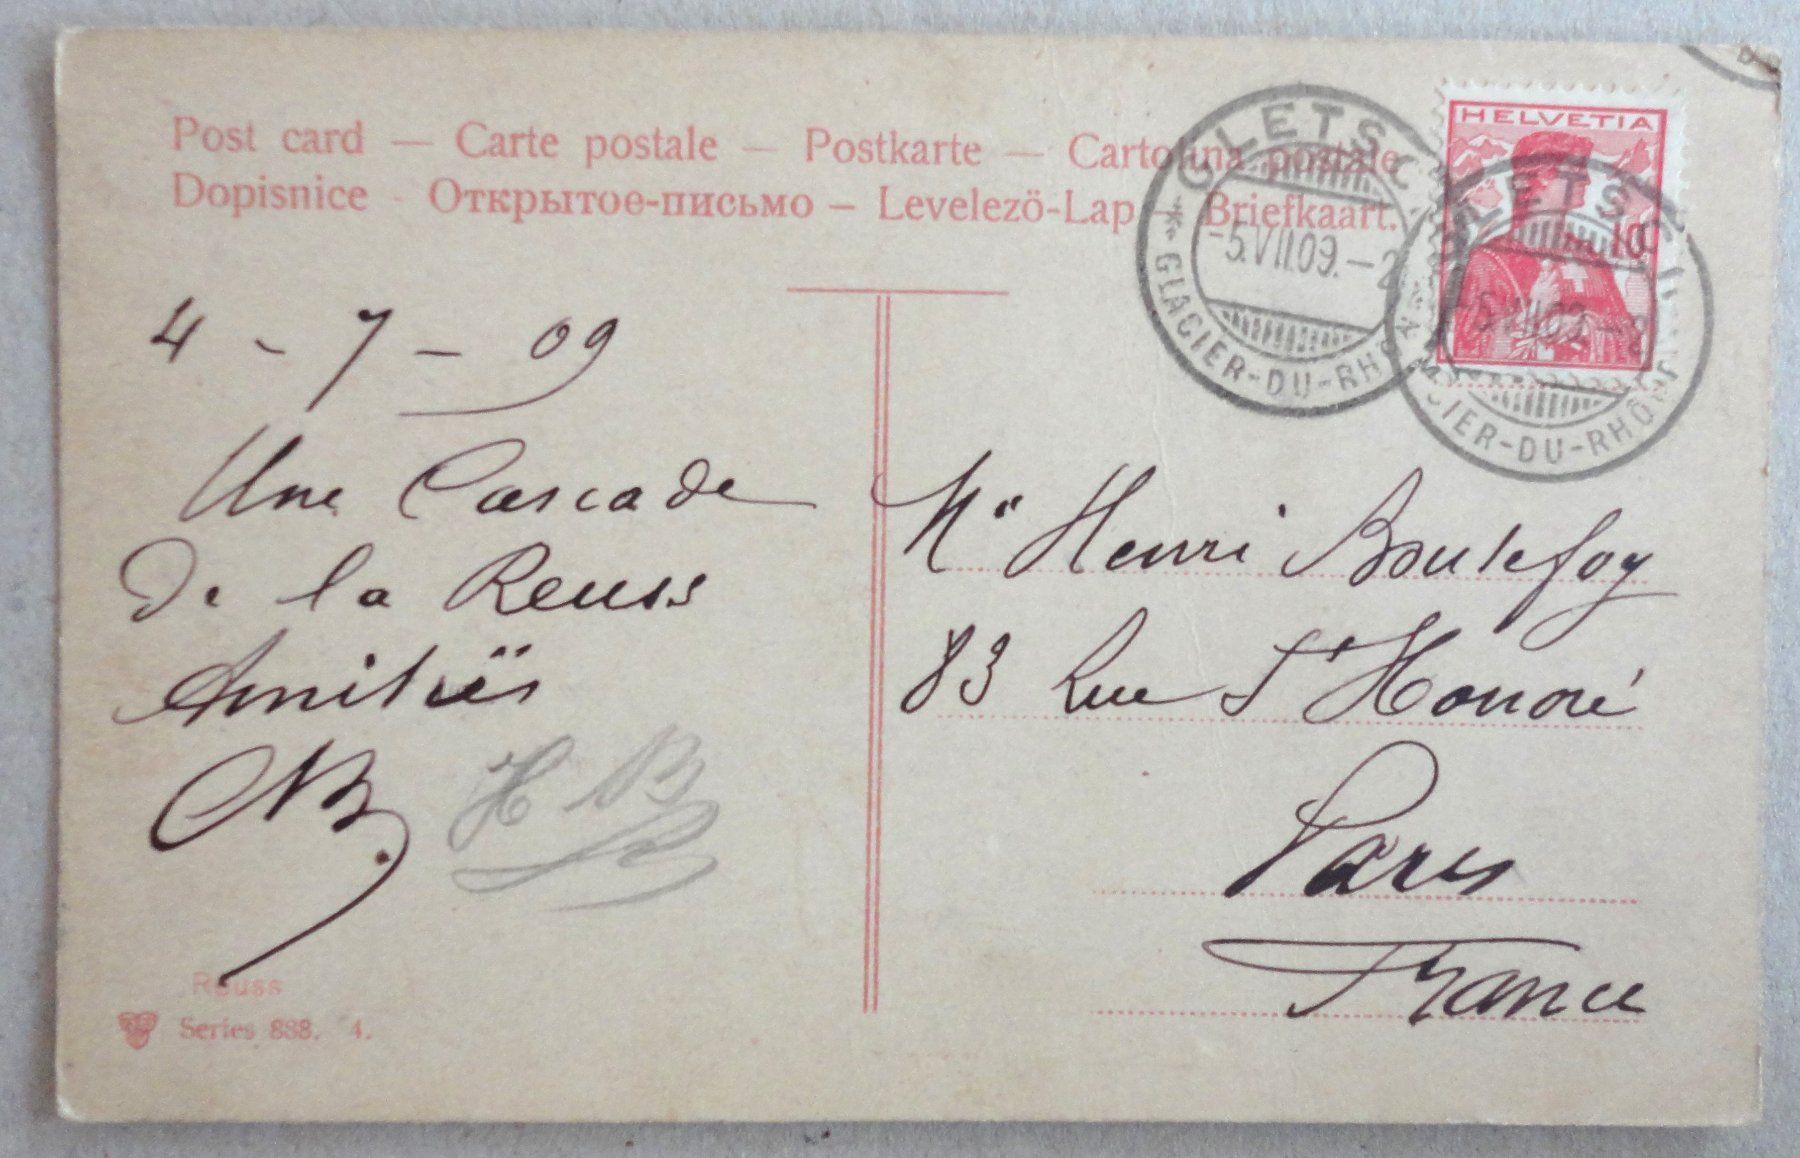 Post card — Carte postale — Postkarte — Cartolina postale
Dopisnice - Открытое-письмо – Levelezö-Lap – Briefkaart.
GLETSCH
-5.VII.09.-2
GLACIER-DU-RHÔNE
HELVETIA
10
GLETSCH
-5.VII.09.-2
GLACIER-DU-RHÔNE
4 - 7 - 09
Une Cascade
de la Reuss
Amitiës
NB.
HB
Mr Henri Boutefoy
83 Rue St Honoré
Paris
France
Reuss
Series 888. 4.